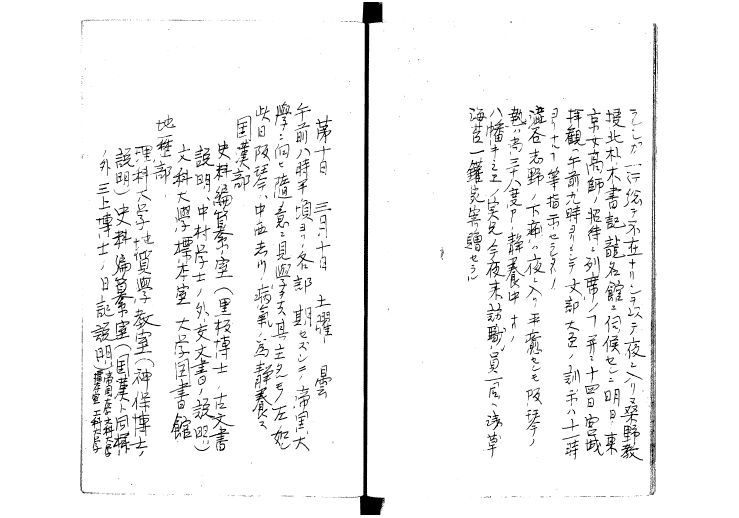 ラレシガ一行総テ不在ナリシヲ以テ夜ニ入リ桑野教
授北村木書記龍名館ニ伺候セシニ明日ノ東
京女高師ノ招待ニ列席ノ丁并ニ十四日宮城
拝観ハ午前九時ヨリニシテ文部大臣ノ訓示ハ十一時
ヨリナル丁等指示セラレタリ
澁谷志野ノ下痢ハ夜ニ入リ平癒セシモ阪琴ノ
熱ハ尚三十八度アリ静養中ナリ
八幡キミヱノ実兄今夜来訪職員一同ヘ浅草
海苔一鑵宛寄贈セラル
第十日 三月十日 土曜 曇
午前八時半頃ヨリ各部期セズシテ帝国大
學ニ向ヒ随意ニ見學ヲナス其主タルモノ左ノ如シ
此日阪琴、中西志ツ病氣ノ為静養ス
国漢部
史料編纂室(黒板博士ノ古文書
説明、中村学士ノ外交文書ノ説明)
文科大學標本室 大学図書館
地歴部
理科大学地質學教室(神保博士ノ
説明)史料編纂室(国漢ト同様
ノ外三上博士ノ日記説明)